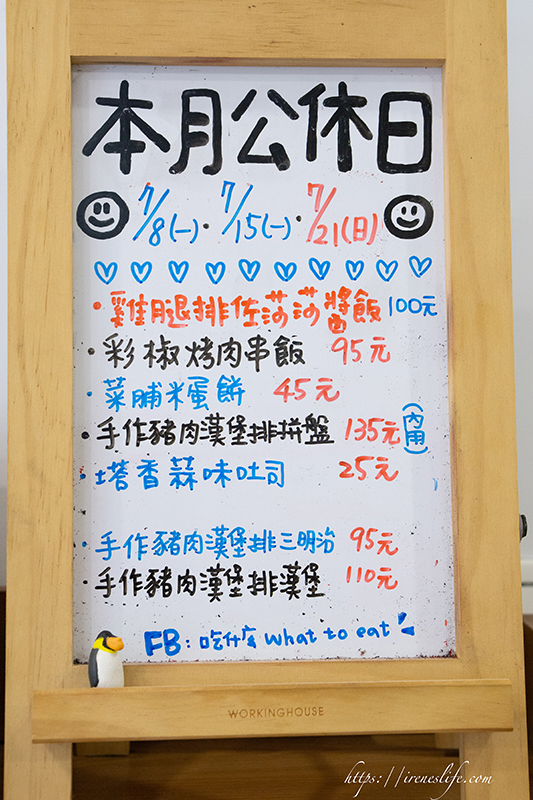 本月公休日
7/8(一)·7/15(一)·7/21(日)
·雞腿排佐莎莎醬飯 100元
·彩椒烤肉串飯 95元
·菜脯米蛋餅 45元
·手作豬肉漢堡排拼盤 135元(內用)
·塔香蒜味吐司 25元
·手作豬肉漢堡排三明治 95元
·手作豬肉漢堡排漢堡 110元
FB:吃什店 what to eat
WORKINGHOUSE
https://ireneslife.com